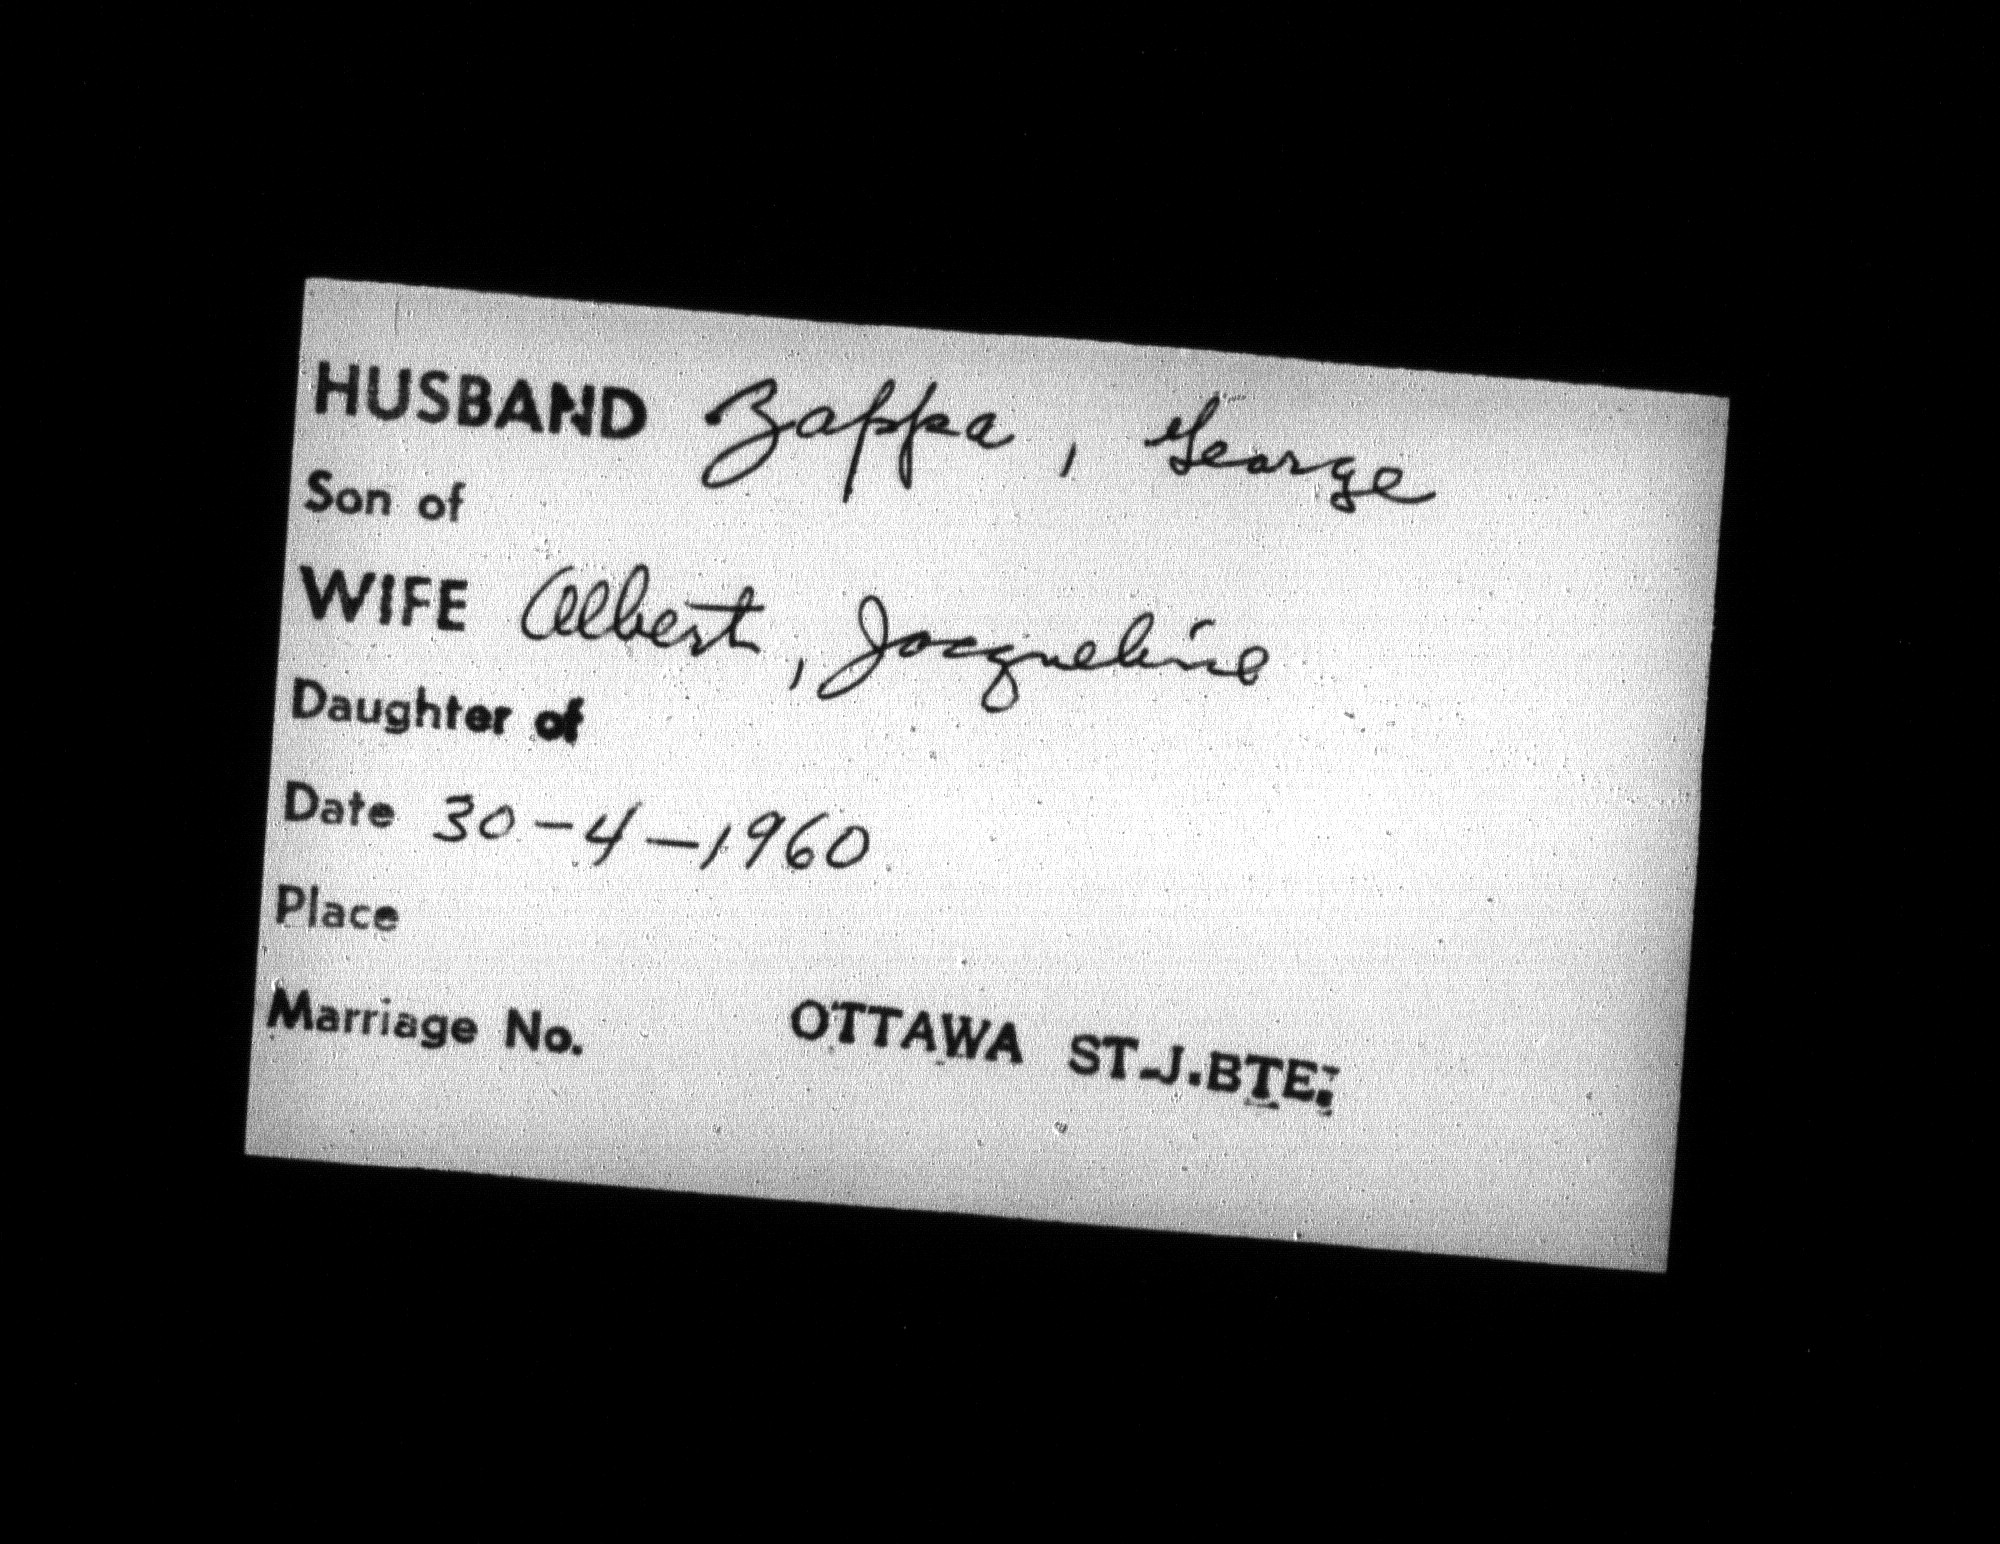 HUSBAND Zappa, George
Son of
WIFE Albert, Jacqueline
Daughter of
Date 30-4-1960
Place
Marriage No. OTTAWA ST-J.BTE.